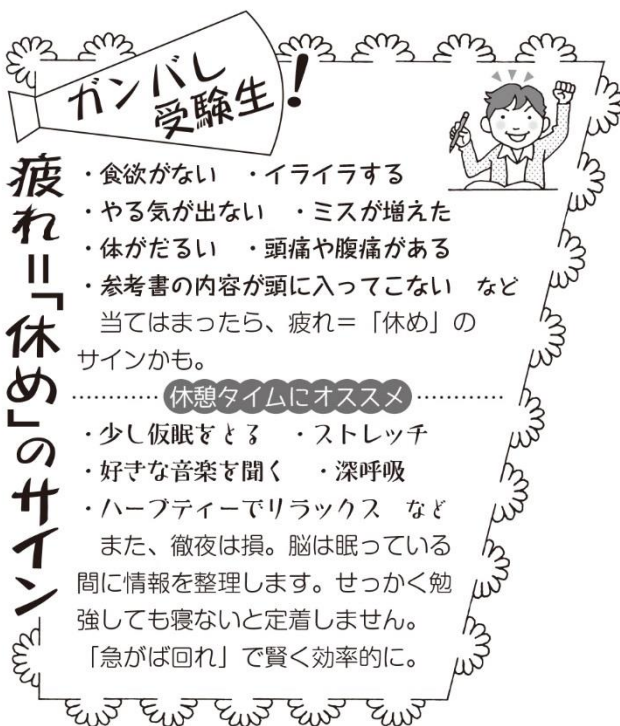 ガンバレ
受験生!
疲れ=「休め」のサイン
・食欲がない ・イライラする
・やる気が出ない ・ミスが増えた
・体がだるい ・頭痛や腹痛がある
・参考書の内容が頭に入ってこない など
当てはまったら、疲れ=「休め」の
サインかも。
休憩タイムにオススメ
・少し仮眠をとる ・ストレッチ
・好きな音楽を聞く ・深呼吸
・ハーブティーでリラックス など
また、徹夜は損。脳は眠っている
間に情報を整理します。せっかく勉
強しても寝ないと定着しません。
「急がば回れ」で賢く効率的に。